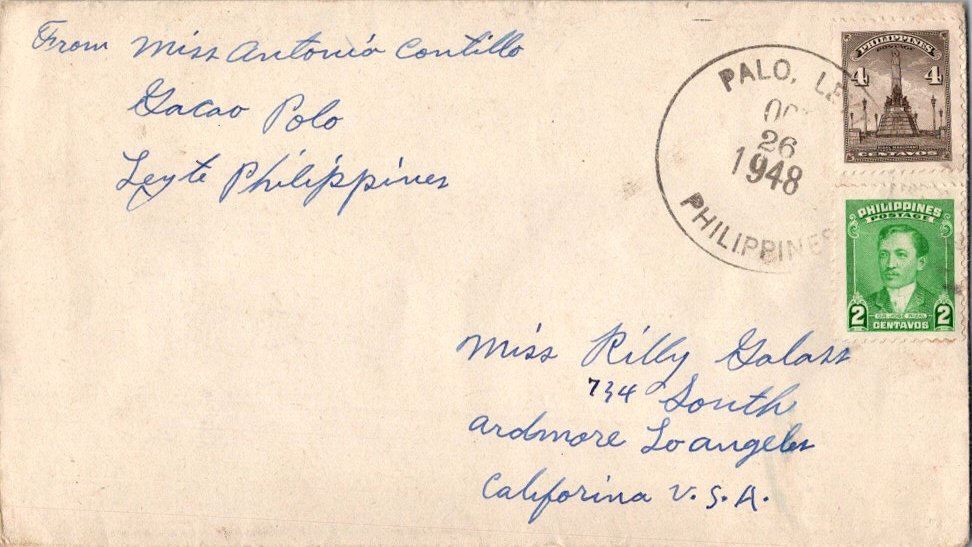 From Miss Antonio Contillo
Gacao Polo
Leyte Philippines
PALO, LE
OCT
26
1948
PHILIPPINES
PHILIPPINES
POSTAGE
4 4
CENTAVOS
PHILIPPINES
POSTAGE
DR. JOSE RIZAL
2 2
CENTAVOS
Miss Rilly Galass
734 South
ardmore Lo angeles
Califorina U.S.A.